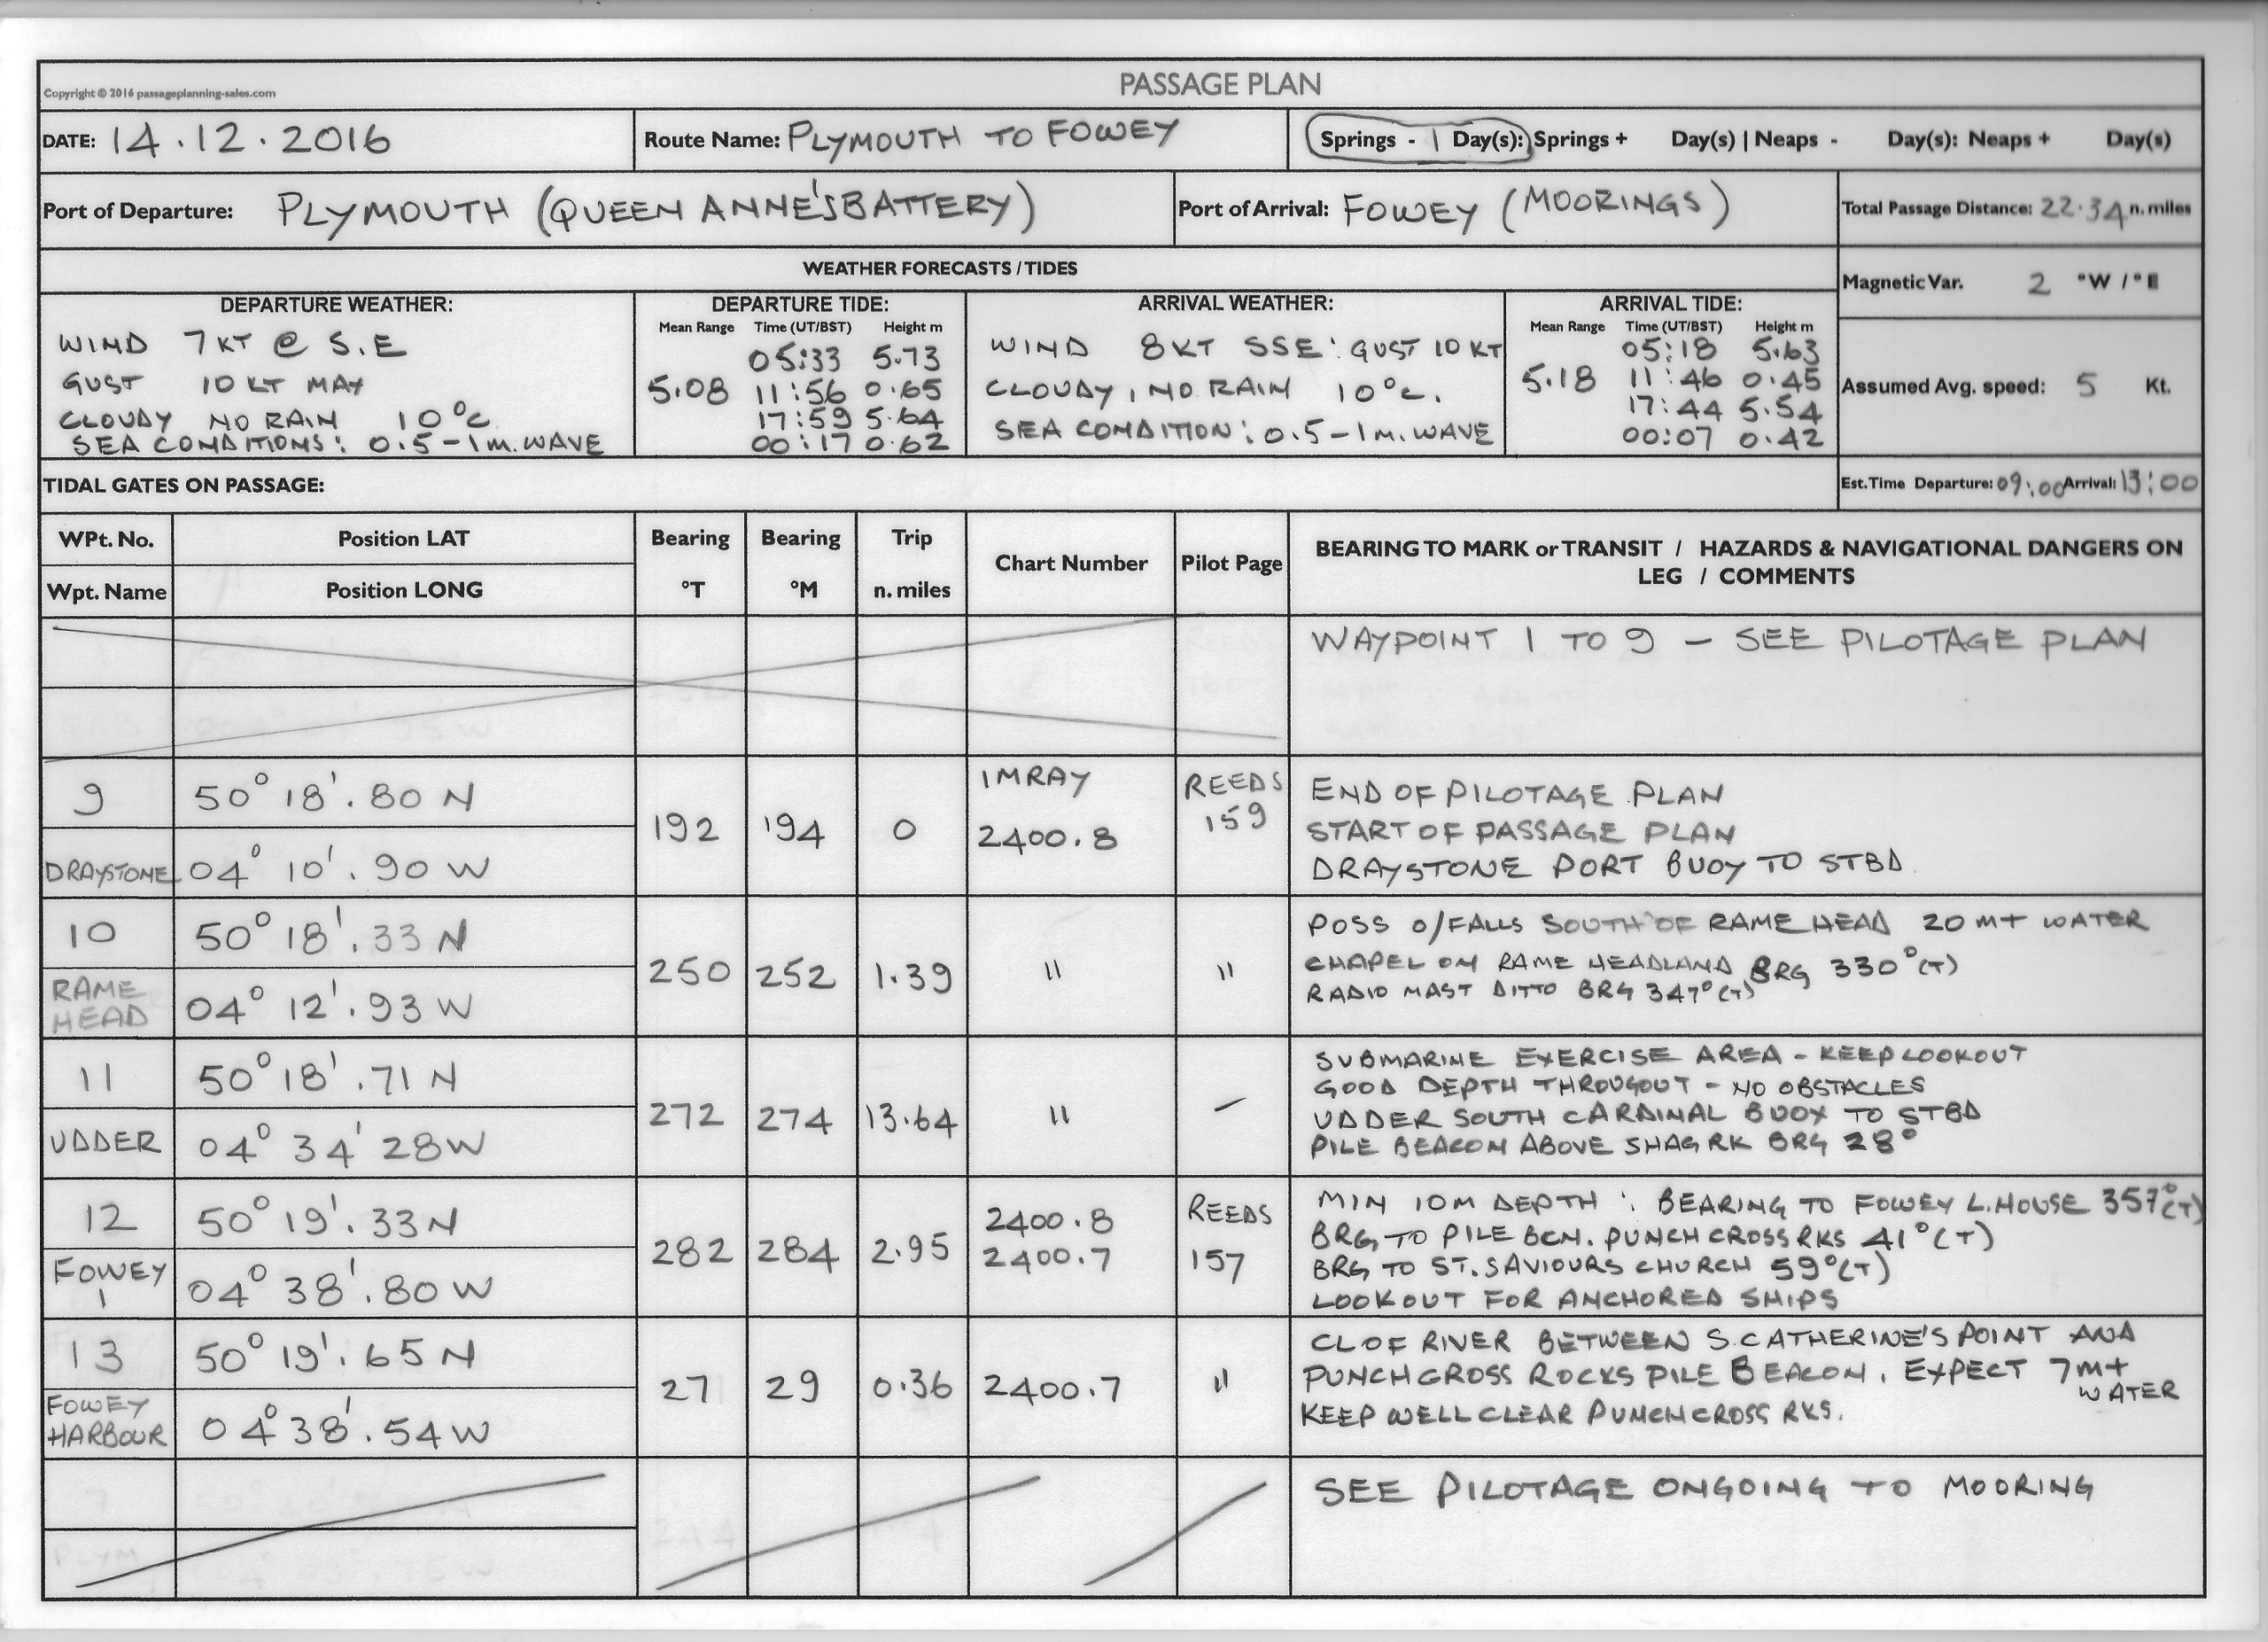 PASSAGE PLAN
Copyright © 2016 passageplanning-sales.com
DATE: 14.12.2016
Route Name: PLYMOUTH TO FOWEY
Springs - 1 Day(s): Springs + Day(s) | Neaps - Day(s): Neaps + Day(s)
Port of Departure: PLYMOUTH (QUEEN ANNE'S BATTERY)
Port of Arrival: FOWEY (MOORINGS)
Total Passage Distance: 22.34 n. miles
WEATHER FORECASTS / TIDES
Magnetic Var. 2 °W / °E
DEPARTURE WEATHER:
WIND 7 KT @ S.E
GUST 10 KT MAX
CLOUDY NO RAIN 10°C
SEA CONDITIONS: 0.5-1M. WAVE
DEPARTURE TIDE:
Mean Range Time (UT/BST) Height m
05:33 5.73
5.08 11:56 0.65
17:59 5.64
00:17 0.62
ARRIVAL WEATHER:
WIND 8KT SSE: GUST 10 KT
CLOUDY, NO RAIN 10°C.
SEA CONDITION: 0.5-1M. WAVE
ARRIVAL TIDE:
Mean Range Time (UT/BST) Height m
05:18 5.63
5.18 11:46 0.45
17:44 5.54
00:07 0.42
Assumed Avg. speed: 5 Kt.
TIDAL GATES ON PASSAGE:
Est. Time Departure: 09:00 Arrival: 13:00
WPt. No.
Wpt. Name
Position LAT
Position LONG
Bearing
°T
Bearing
°M
Trip
n. miles
Chart Number
Pilot Page
BEARING TO MARK or TRANSIT / HAZARDS & NAVIGATIONAL DANGERS ON
LEG / COMMENTS
WAYPOINT 1 TO 9 - SEE PILOTAGE PLAN
9
DRAYSTONE
50° 18'.80 N
04° 10'.90 W
192
194
0
IMRAY
2400.8
REEDS
159
END OF PILOTAGE PLAN
START OF PASSAGE PLAN
DRAYSTONE PORT BUOY TO STBD
10
RAME
HEAD
50° 18'.33 N
04° 12'.93 W
250
252
1.39
"
"
POSS O/FALLS SOUTH OF RAME HEAD 20 M+ WATER
CHAPEL ON RAME HEADLAND BRG 330°(T)
RADIO MAST DITTO BRG 347°(T)
11
UDDER
50° 18'.71 N
04° 34' 28 W
272
274
13.64
"
-
SUBMARINE EXERCISE AREA - KEEP LOOKOUT
GOOD DEPTH THROUGOUT - NO OBSTACLES
UDDER SOUTH CARDINAL BUOY TO STBD
PILE BEACON ABOVE SHAG RK BRG 28°
12
FOWEY
1
50° 19'.33 N
04° 38'.80 W
282
284
2.95
2400.8
2400.7
REEDS
157
MIN 10M DEPTH : BEARING TO FOWEY L.HOUSE 357°(T)
BRG TO PILE BCN. PUNCH CROSS RKS 41°(T)
BRG TO ST. SAVIOURS CHURCH 59°(T)
LOOKOUT FOR ANCHORED SHIPS
13
FOWEY
HARBOUR
50° 19'.65 N
04° 38'.54 W
27
29
0.36
2400.7
"
CL OF RIVER BETWEEN S. CATHERINE'S POINT AND
PUNCH CROSS ROCKS PILE BEACON. EXPECT 7M+
WATER
KEEP WELL CLEAR PUNCH CROSS RKS.
SEE PILOTAGE ONGOING TO MOORING